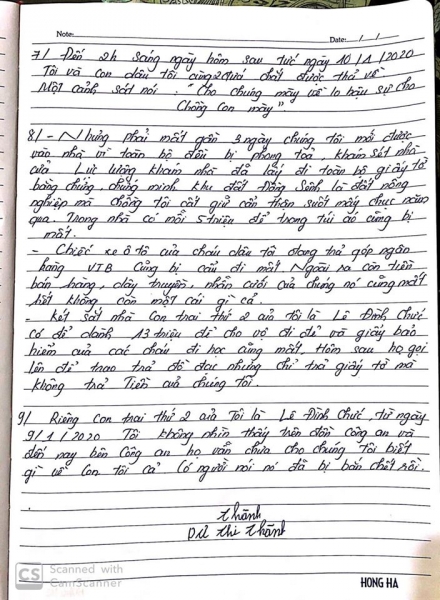 Note: Date: / /
7/ Đến 2h sáng ngày hôm sau tức ngày 10/1/2020
Tôi và con dâu tôi cùng 2 đứa chắt được thả về
Một cảnh sát nói : "Cho chúng mày về lo hậu sự cho
Chồng Con mày"
8/ - Nhưng phải mất gần 3 ngày chúng tôi mới được
vào nhà vì toàn bộ đều bị phong toả, khám sét nhà
cửa. Lực lượng khám nhà đã lấy đi toàn bộ giấy tờ
bằng chứng, chứng minh khu đất Đồng Sênh là đất nông
nghiệp mà chồng tôi cất giữ cẩn thận suốt mấy chục năm
qua. Trong nhà có mỗi 5 triệu để trong túi áo cũng bị
mất.
- Chiếc xe ô tô của cháu dâu tôi đang trả góp ngân
hàng VTB cũng bị cẩu đi mất. Ngoài ra còn tiền
bán hàng, dây truyền, nhẫn cưới của chúng nó cũng mất
hết không còn một cái gì cả.
- Két sắt nhà Con trai thứ 2 của tôi là Lê Đình Chức
có để dành 13 triệu để cho vợ đi đẻ và giấy bảo
hiểm của các cháu đi học cũng mất. Hôm sau họ gọi
lên để trao trả đồ đạc nhưng chỉ trả giấy tờ mà
không trả Tiền của chúng tôi.
9/ Riêng Con trai thứ 2 của Tôi là Lê Đình Chức, từ ngày
9/1/2020 Tôi không nhìn thấy trên đồn công an và
đến nay bên Công an họ vẫn chưa cho chúng tôi biết
gì về Con tôi cả Có người nói nó đã bị bắn chết rồi.
Thành
Dư Thị Thành
CS Scanned with
CamScanner
HONG HA